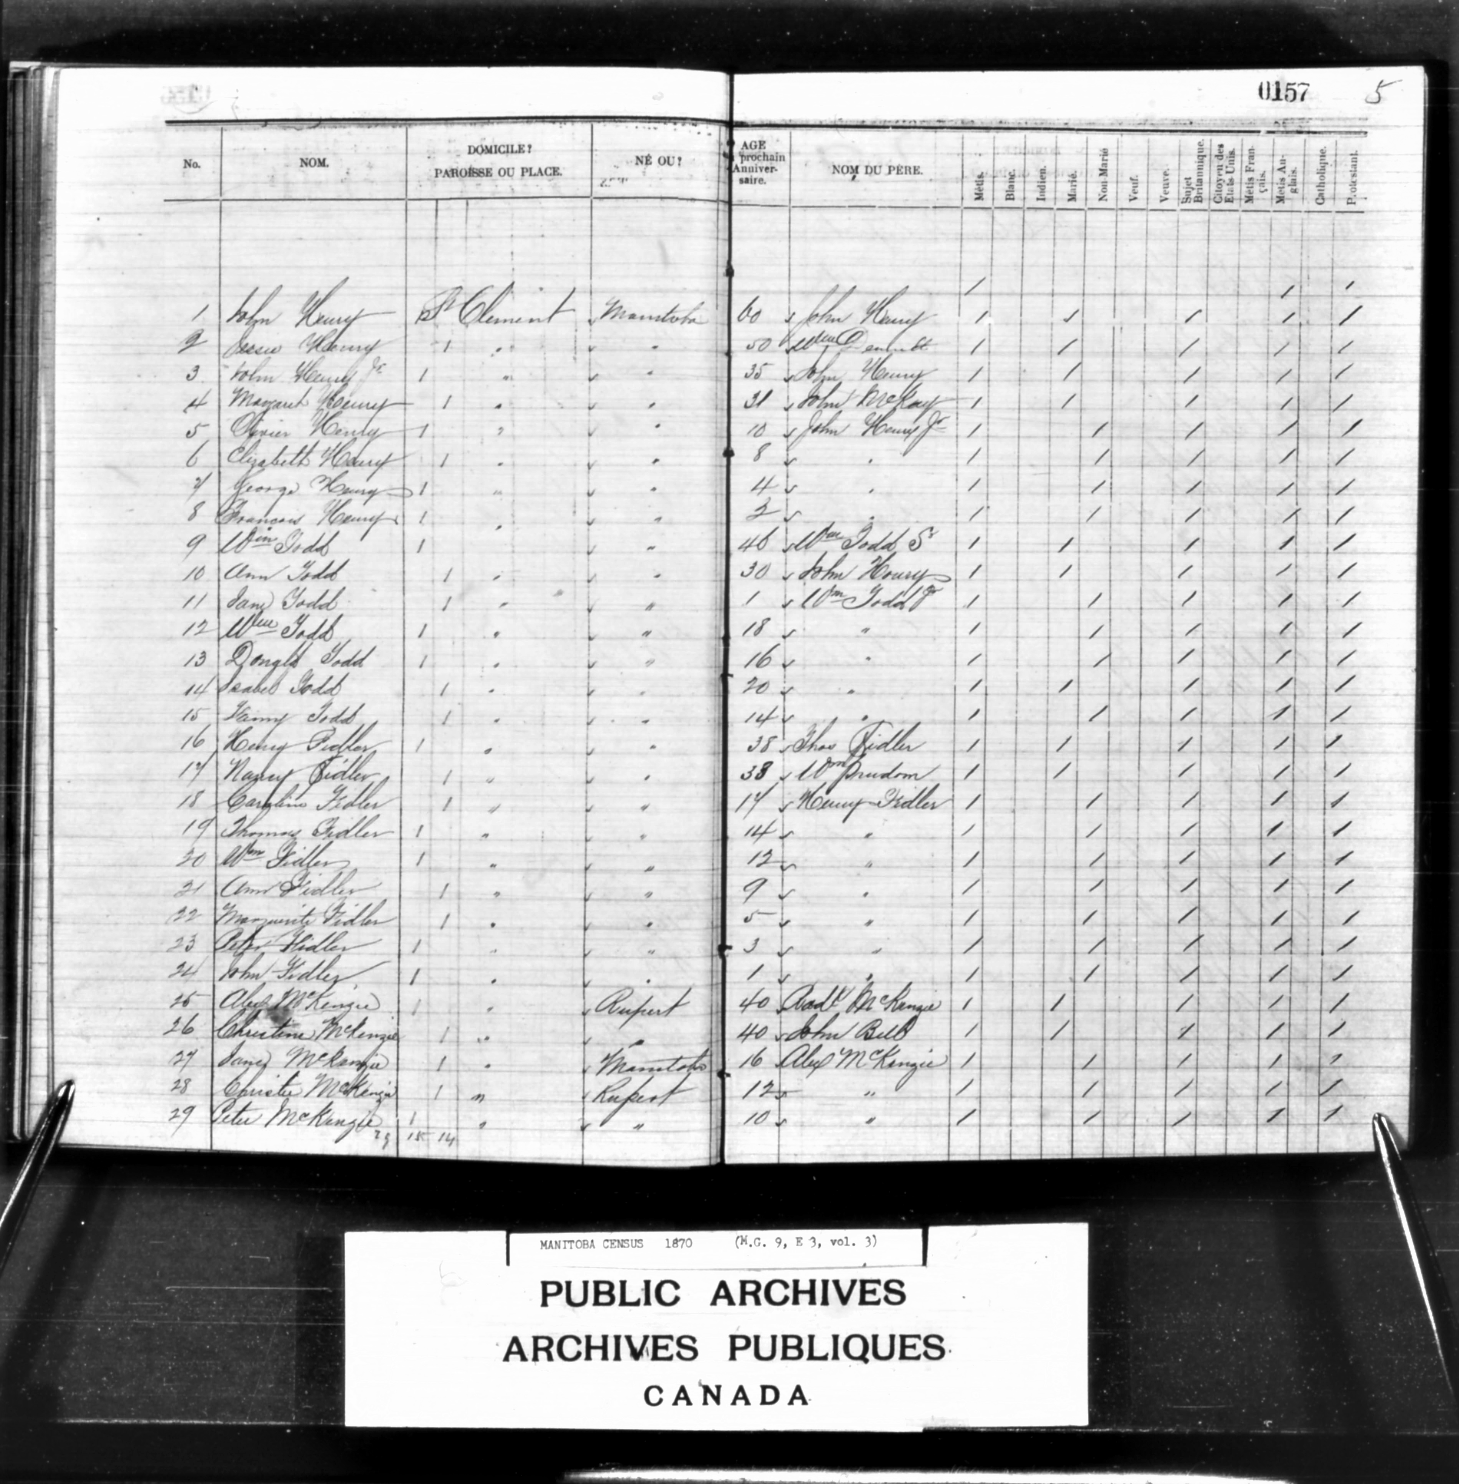 0157 5
No. NOM. DOMICILE? PAROISSE OU PLACE. NÉ OU? AGE prochain Anniversaire. NOM DU PÈRE. Métis. Blanc. Indien. Marié. Non Marié Veuf. Veuve. Sujet Britannique. Citoyen des Etats Unis. Métis Français. Métis Anglais. Catholique. Protestant.
/ / /
1 John Henry St Clement Manitoba 60 John Henry / / / / /
2 Henry 1 " " 50 Wm / / / / /
3 John Henry Jr 1 " " 35 John Henry / / / / /
4 Margaret Henry 1 " " 31 John McKay / / / / /
5 Henry 1 " " 10 John Henry Jr / / / / /
6 Elizabeth Henry 1 " " 8 " / / / / /
7 George Henry 1 " " 4 " / / / / /
8 Henry 1 " " 2 " / / / / /
9 Wm Todd 1 " 46 Wm Todd Sr / / / / /
10 Ann Todd 1 " " 30 John Henry / / / / /
11 Jane Todd 1 " " 1 Wm Todd Jr / / / / /
12 Wm Todd 1 " " 18 " / / / / /
13 Donald Todd 1 " " 16 " / / / / /
14 Isabel Todd 1 " " 20 " / / / / /
15 Todd 1 " " 14 " / / / / /
16 Henry Fidler 1 " " 38 Thos Fidler / / / / /
17 Nancy Fidler 1 " " 38 Wm Prudom / / / / /
18 Caroline Fidler 1 " " 17 Henry Fidler / / / / /
19 Thomas Fidler 1 " " 14 " / / / / /
20 Wm Fidler 1 " " 12 " / / / / /
21 Ann Fidler 1 " " 9 " / / / / /
22 Marguerite Fidler 1 " " 5 " / / / / /
23 Peter Fidler 1 " " 3 " / / / / /
24 John Fidler 1 " " 1 " / / / / /
25 Alex McKenzie 1 " Rupert 40 McKenzie / / / / /
26 Christine McKenzie 1 " " 40 John Bell / / / / /
27 Jane McKenzie 1 " Manitoba 16 Alex McKenzie / / / / /
28 Christie McKenzie 1 " Rupert 12 " / / / / /
29 Peter McKenzie 1 " " 10 " / / / / /
29 15 14
MANITOBA CENSUS 1870 (M.G. 9, E 3, vol. 3)
PUBLIC ARCHIVES
ARCHIVES PUBLIQUES
CANADA